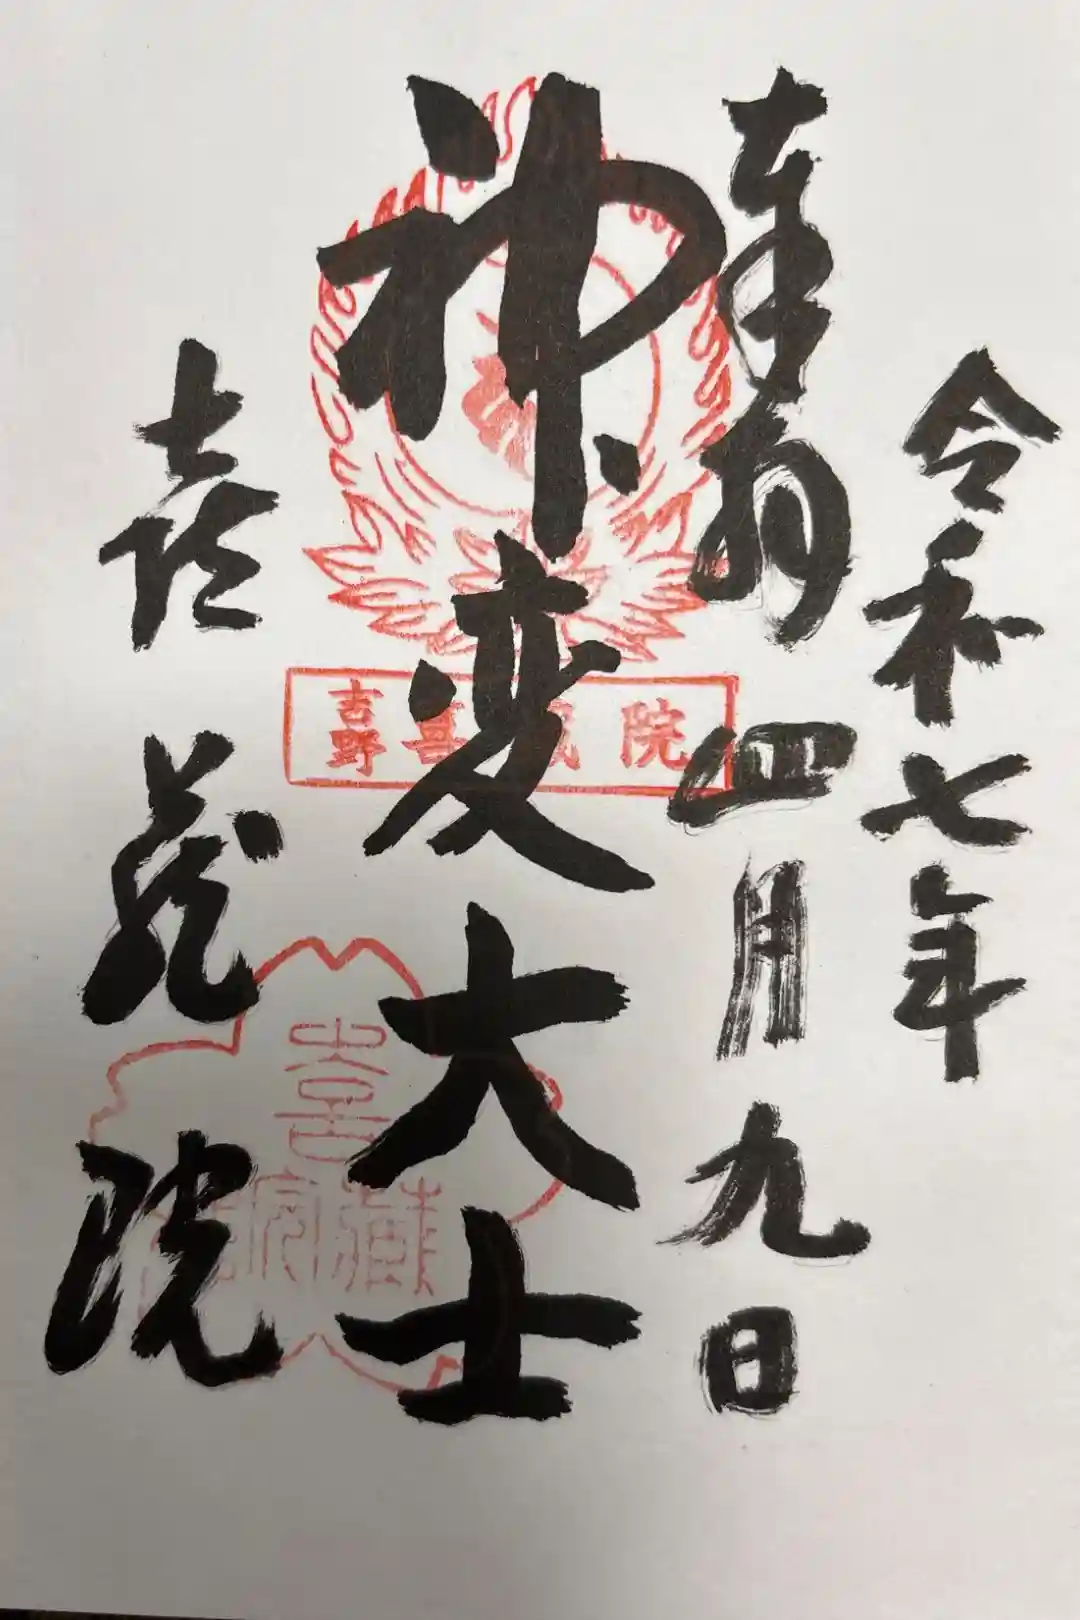 令和七年
奉拝 四月九日
神変大士
喜蔵院
吉野 喜蔵院
喜蔵院